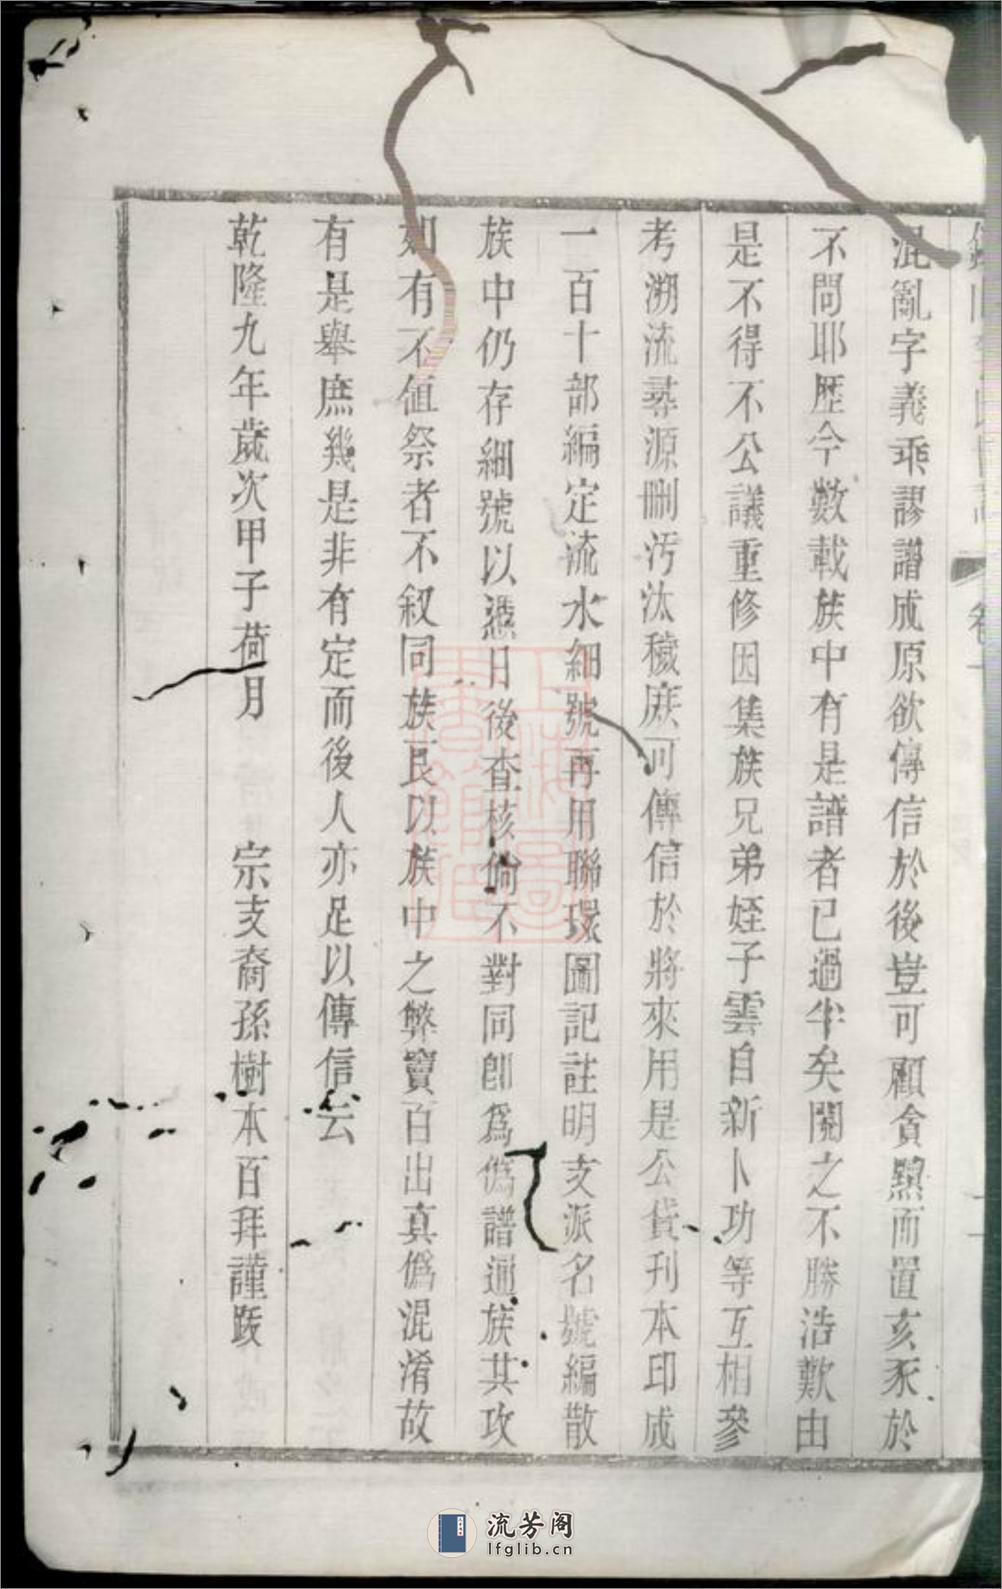 卷一
混亂字義乖謬譜成原欲傳信於後豈可顧貪黷而置亥豕於
不問耶歷今數載族中有是譜者已過半矣閱之不勝浩歎由
是不得不公議重修因集族兄弟姪子雲自新卜功等互相參
考溯流尋源刪汚汰穢庶可傳信於將來用是公貲刊本印成
一百十部編定流水細號再用聯環圖記註明支派名號編散
族中仍存細號以憑日後查核倘不對同卽爲僞譜通族共攻
如有不值祭者不叙同族良以族中之弊竇百出真僞混淆故
有是舉庶幾是非有定而後人亦足以傳信云
乾隆九年歲次甲子荷月 宗支裔孫樹本百拜謹跋
流芳阁
lfglib.cn